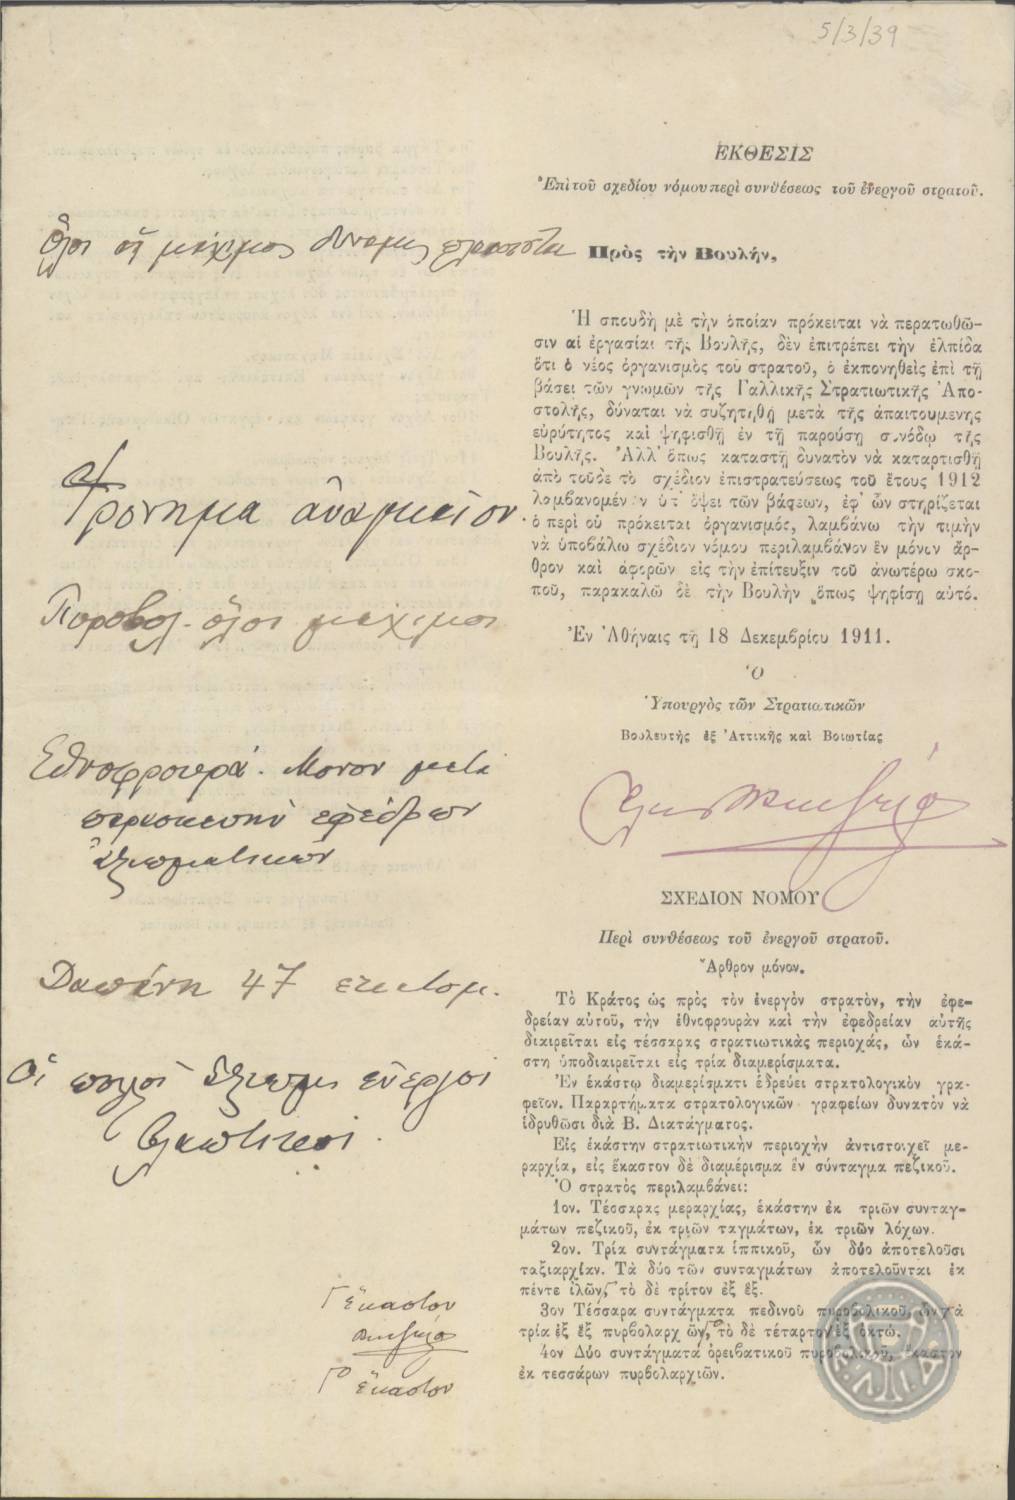 5/3/39
ΕΚΘΕΣΙΣ
Ἐπὶ τοῦ σχεδίου νόμου περὶ συνθέσεως τοῦ ἐνεργοῦ στρατοῦ.
Πρὸς τὴν Βουλήν,
Ἡ σπουδὴ μὲ τὴν ὁποίαν πρόκειται νὰ περατωθῶ-
σιν αἱ ἐργασίαι τῆς Βουλῆς, δὲν ἐπιτρέπει τὴν ἐλπίδα
ὅτι ὁ νέος ὀργανισμὸς τοῦ στρατοῦ, ὁ ἐκπονηθεὶς ἐπὶ τῇ
βάσει τῶν γνωμῶν τῆς Γαλλικῆς Στρατιωτικῆς Ἀπο-
στολῆς, δύναται νὰ συζητηθῇ μετὰ τῆς ἀπαιτουμενης
εὐρύτητος καὶ ψηφισθῇ ἐν τῇ παρούσῃ συνόδῳ τῆς
Βουλῆς. Ἀλλ' ὅπως καταστῇ δυνατὸν νὰ καταρτισθῇ
ἀπὸ τοῦδε τὸ σχέδιον ἐπιστρατεύσεως τοῦ ἔτους 1912
λαμβανομένων ὑπ' ὄψει τῶν βάσεων, ἐφ' ὧν στηρίζεται
ὁ περὶ οὗ πρόκειται ὀργανισμός, λαμβάνω τὴν τιμὴν
νὰ ὑποβάλω σχέδιον νόμου περιλαμβάνον ἓν μόνον ἄρ-
θρον καὶ ἀφορῶν εἰς τὴν ἐπίτευξιν τοῦ ἀνωτέρω σκο-
ποῦ, παρακαλῶ δὲ τὴν Βουλὴν ὅπως ψηφίσῃ αὐτό.
Ἐν Ἀθήναις τῇ 18 Δεκεμβρίου 1911.
Ὁ
Ὑπουργὸς τῶν Στρατιωτικῶν
Βουλευτὴς ἐξ Ἀττικῆς καὶ Βοιωτίας
ΣΧΕΔΙΟΝ ΝΟΜΟΥ
Περὶ συνθέσεως τοῦ ἐνεργοῦ στρατοῦ.
Ἄρθρον μόνον.
Τὸ Κράτος ὡς πρὸς τὸν ἐνεργὸν στρατόν, τὴν ἐφε-
δρείαν αὐτοῦ, τὴν ἐθνοφρουρὰν καὶ τὴν ἐφεδρείαν αὐτῆς
διαιρεῖται εἰς τέσσαρας στρατιωτικὰς περιοχάς, ὧν ἑκά-
στη ὑποδιαιρεῖται εἰς τρία διαμερίσματα.
Ἐν ἑκάστῳ διαμερίσματι ἑδρεύει στρατολογικὸν γρα-
φεῖον. Παραρτήματα στρατολογικῶν γραφείων δυνατὸν νὰ
ἱδρυθῶσι διὰ Β. Διατάγματος.
Εἰς ἑκάστην στρατιωτικὴν περιοχὴν ἀντιστοιχεῖ με-
ραρχία, εἰς ἕκαστον δὲ διαμέρισμα ἓν σύνταγμα πεζικοῦ.
Ὁ στρατὸς περιλαμβάνει:
1ον. Τέσσαρας μεραρχίας, ἑκάστην ἐκ τριῶν συνταγ-
μάτων πεζικοῦ, ἐκ τριῶν ταγμάτων, ἐκ τριῶν λόχων.
2ον. Τρία συντάγματα ἱππικοῦ, ὧν δύο ἀποτελοῦσι
ταξιαρχίαν. Τὰ δύο τῶν συνταγμάτων ἀποτελοῦνται ἐκ
πέντε ἰλῶν, τὸ δὲ τρίτον ἐξ ἕξ.
3ον Τέσσαρα συντάγματα πεδινοῦ πυροβολικοῦ, ὧν τὰ
τρία ἐξ ἓξ πυρβολαρχ ῶν, τὸ δὲ τέταρτον ἐξ ὀκτώ.
4ον Δύο συντάγματα ὀρειβατικοῦ πυροβολικοῦ, ἕκαστον
ἐκ τεσσάρων πυρβολαρχιῶν.
Φρόνημα ἀναγκαῖον.
Πυροβολ. ὅλοι μάχιμοι
Ἐθνοφρουρά. Μόνον μετὰ
παρασκευὴν ἐφέδρων
ἀξιωματικῶν
Δαπάνη 47 ἑκατομ.
Γ ἕκαστον
Γ ἕκαστον